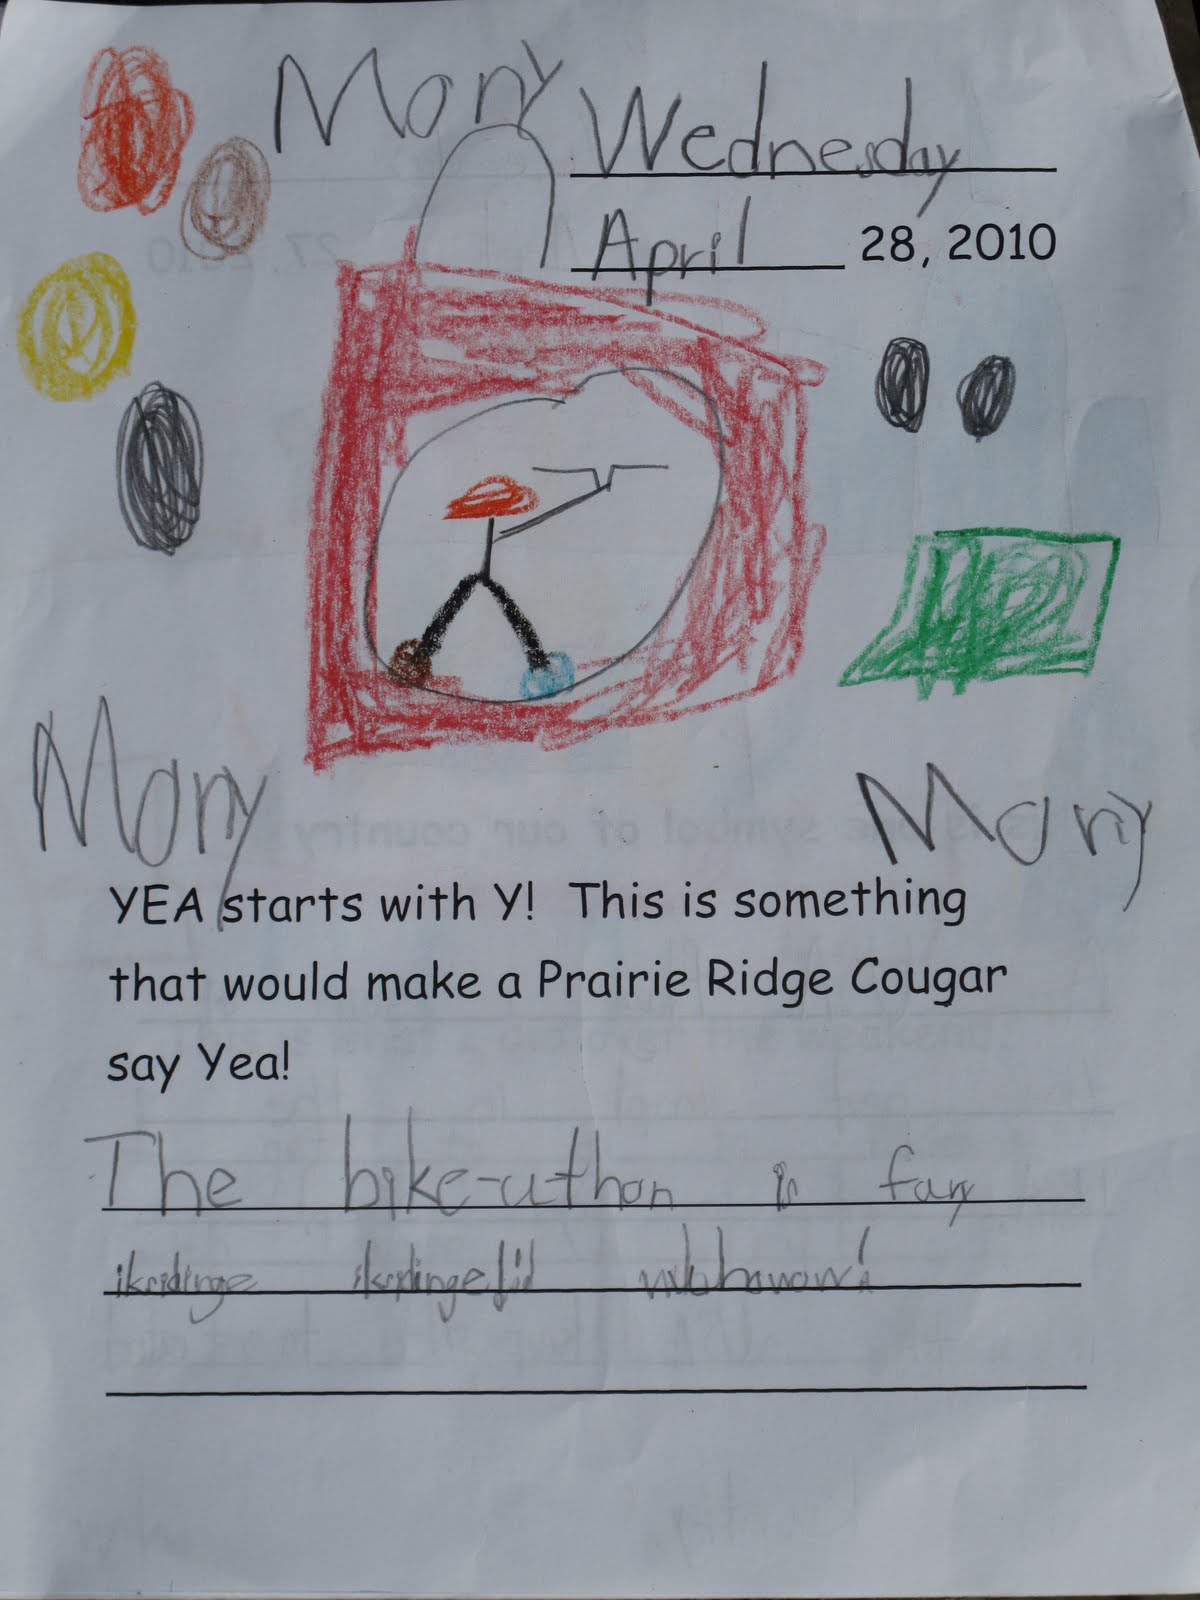 Mony
Wednesday
April 28, 2010
Mony
Mony
YEA starts with Y! This is something
that would make a Prairie Ridge Cougar
say Yea!
The bike-a-thon is